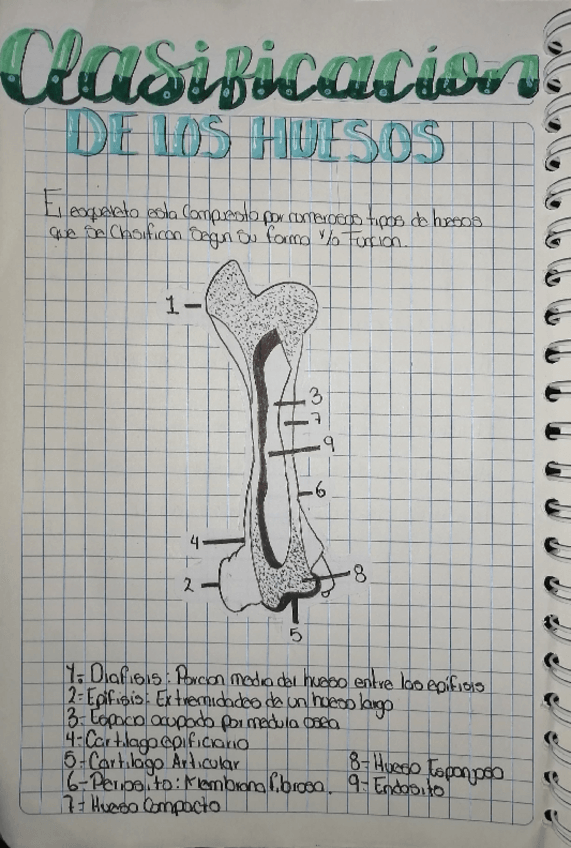 Clasificacion
DE LOS HUESOS
El esqueleto esta Compuesto por numerosos tipos de huesos
que se Clasifican Segun Su forma y/o Funcion.
1
3
7
9
6
4
2
8
5
1= Diafisis: Porcion media del hueso entre las epifisis
2= Epifisis: Extremidades de un hueso largo
3- Espacio ocupado por medula osea
4- Cartilago epificiario
5- Cartilago Articular
6- Periosito: Membrana fibrosa.
7- Hueso Compacto
8- Hueso Esponjoso
9- Endosito